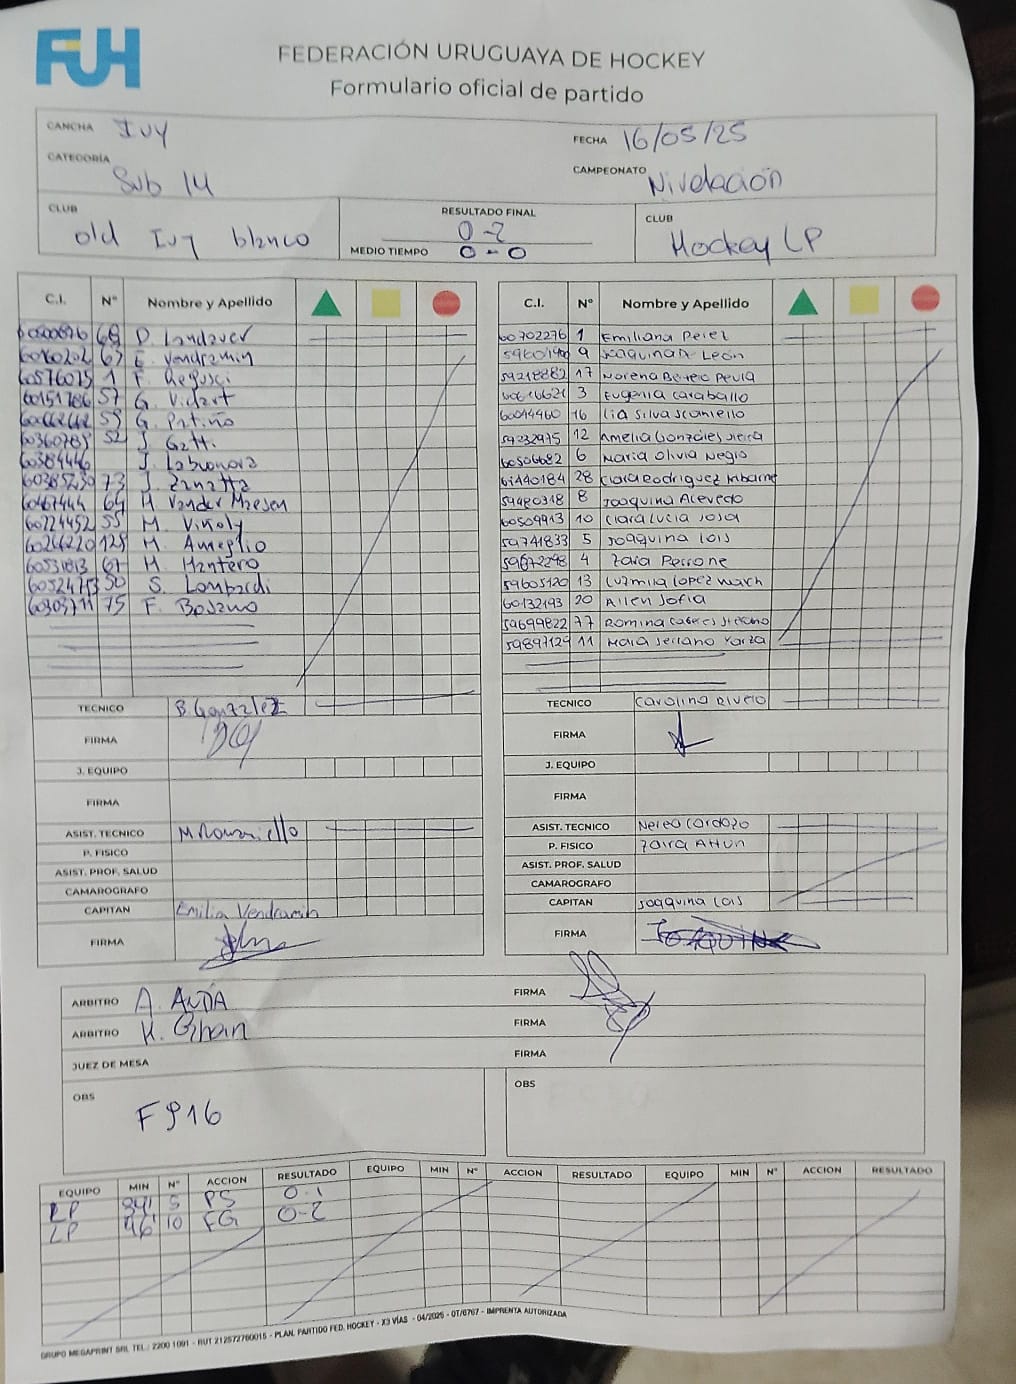 FUH
FEDERACIÓN URUGUAYA DE HOCKEY
Formulario oficial de partido
CANCHA Ivy FECHA 16/05/25
CATEGORÍA Sub 14 CAMPEONATO Nivelación
CLUB old Ivy blanco RESULTADO FINAL 0-2 CLUB Hockey LP
MEDIO TIEMPO 0-0
C.I. N° Nombre y Apellido C.I. N° Nombre y Apellido
69 D. Landaver 60702276 1 Emiliana Perez
67 E. Vendramin 9 Joaquina D León
60576075 1 F. Regusci 59218882 17
60151786 57 G. Vidart 3 Eugenia Caraballo
59 G. Patiño 60014460 16 Lia Silva Scaniello
60360785 52 J. Gatti 59232975 12 Amelia Gonzáles
60384446 J. Labuonora 60506682 6 Maria Olivia Negro
60385230 73 J. Zanatta 61440184 28 Clara Rodriguez
60467444 64 M Vander Maesen 59480318 8 Joaquina Acevedo
60224452 55 M. Viñoly 60509913 10 Clara Lucia Sosa
60266220 125 M. Ameglio 59741833 5 Joaquina Lois
67 M. Mantero 59672298 4 Zaira Perrone
50 S. Lombardi 59605120 13 Luzmila Lopez
75 F. Bosano 60132193 20 Allen Sofia
59699822 77 Romina
59897129 11 Mara Serrano Yarza
TECNICO B. González TECNICO Carolina Rivero
FIRMA FIRMA
J. EQUIPO J. EQUIPO
FIRMA FIRMA
ASIST. TECNICO M Romaniello ASIST. TECNICO Nereo Cardozo
P. FISICO P. FISICO Zaira
ASIST. PROF. SALUD ASIST. PROF. SALUD
CAMAROGRAFO CAMAROGRAFO
CAPITAN Emilia Vendramin CAPITAN Joaquina Lois
FIRMA FIRMA
ARBITRO A. FIRMA
ARBITRO K. FIRMA
JUEZ DE MESA FIRMA
OBS F916 OBS
EQUIPO MIN N° ACCION RESULTADO EQUIPO MIN N° ACCION RESULTADO EQUIPO MIN N° ACCION RESULTADO
LP 5 PS 0-1
LP 46' 10 FG 0-2
GRUPO MEGAPRINT SRL TEL.: 2200 1091 - RUT 212572760015 - PLAN. PARTIDO FED. HOCKEY - X3 VÍAS - 04/2025 - OT/6767 - IMPRENTA AUTORIZADA